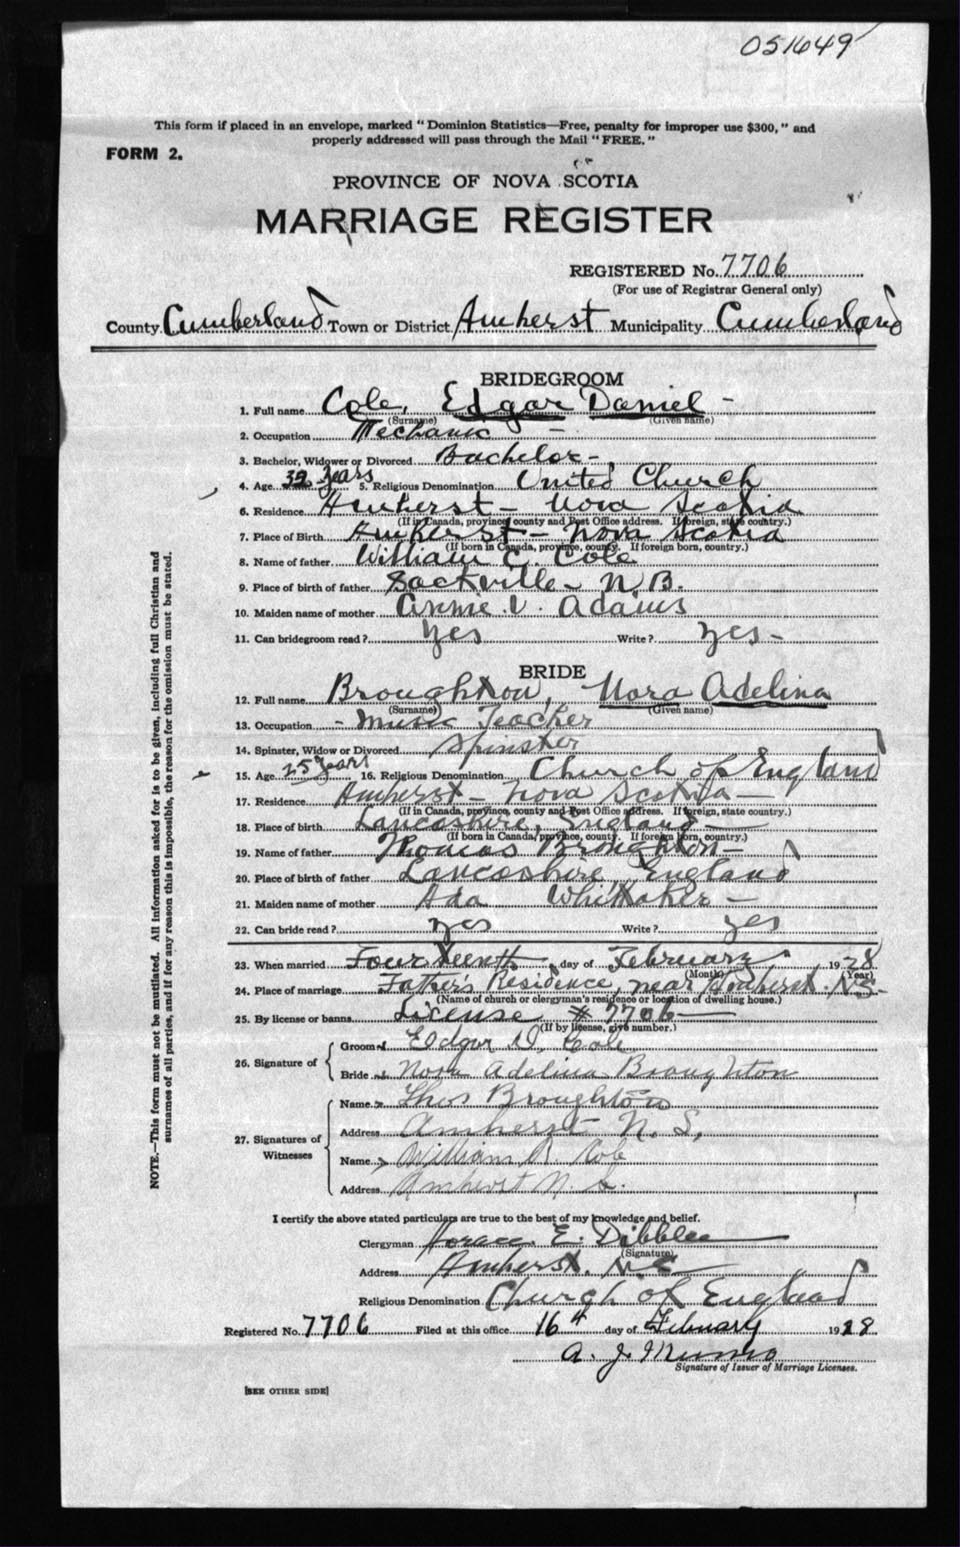 051649
This form if placed in an envelope, marked "Dominion Statistics—Free, penalty for improper use $300," and
properly addressed will pass through the Mail "FREE."
FORM 2.
PROVINCE OF NOVA SCOTIA
MARRIAGE REGISTER
REGISTERED No. 7706
(For use of Registrar General only)
County Cumberland Town or District Amherst Municipality Cumberland
BRIDEGROOM
1. Full name Cole, Edgar Daniel -
(Surname) (Given name)
2. Occupation Mechanic -
3. Bachelor, Widower or Divorced Bachelor -
4. Age years 5. Religious Denomination United Church
6. Residence Amherst - Nova Scotia
(If in Canada, province, county and Post Office address. If foreign, state country.)
7. Place of Birth Amherst - Nova Scotia
(If born in Canada, province, county. If foreign born, country.)
8. Name of father William C. Cole
9. Place of birth of father Sackville - N.B.
10. Maiden name of mother Annie V. Adams
11. Can bridegroom read? Yes Write? Yes -
BRIDE
12. Full name Broughton, Nora Adelina
(Surname) (Given name)
13. Occupation - Music Teacher
14. Spinster, Widow or Divorced Spinster
15. Age 25 years 16. Religious Denomination Church of England
17. Residence Amherst - Nova Scotia -
(If in Canada, province, county and Post Office address. If foreign, state country.)
18. Place of birth Lancashire, England -
(If born in Canada, province, county. If foreign born, country.)
19. Name of father Thomas Broughton -
20. Place of birth of father Lancashire, England
21. Maiden name of mother Ada Whittaker -
22. Can bride read? yes Write? yes
23. When married Fourteenth day of February 1928
(Month) (Year)
24. Place of marriage Father's Residence, near Amherst N.S.-
(Name of church or clergyman's residence or location of dwelling house.)
25. By license or banns License # 7706
(If by license, give number.)
26. Signature of
Groom Edgar D. Cole
Bride Nora Adelina Broughton
27. Signatures of Witnesses
Name Thos Broughton
Address Amherst N.S.
Name William R. Cole
Address Amherst N.S.
I certify the above stated particulars are true to the best of my knowledge and belief.
Clergyman Horace E. Dibblee
(Signature)
Address Amherst, N.S.
Religious Denomination Church of England
Registered No. 7706 Filed at this office 16th day of February 1928
A. J. Munro
Signature of Issuer of Marriage Licenses.
[SEE OTHER SIDE]
NOTE.—This form must not be mutilated. All information asked for is to be given, including full Christian and
surnames of all parties, and if for any reason this is impossible, the reason for the omission must be stated.